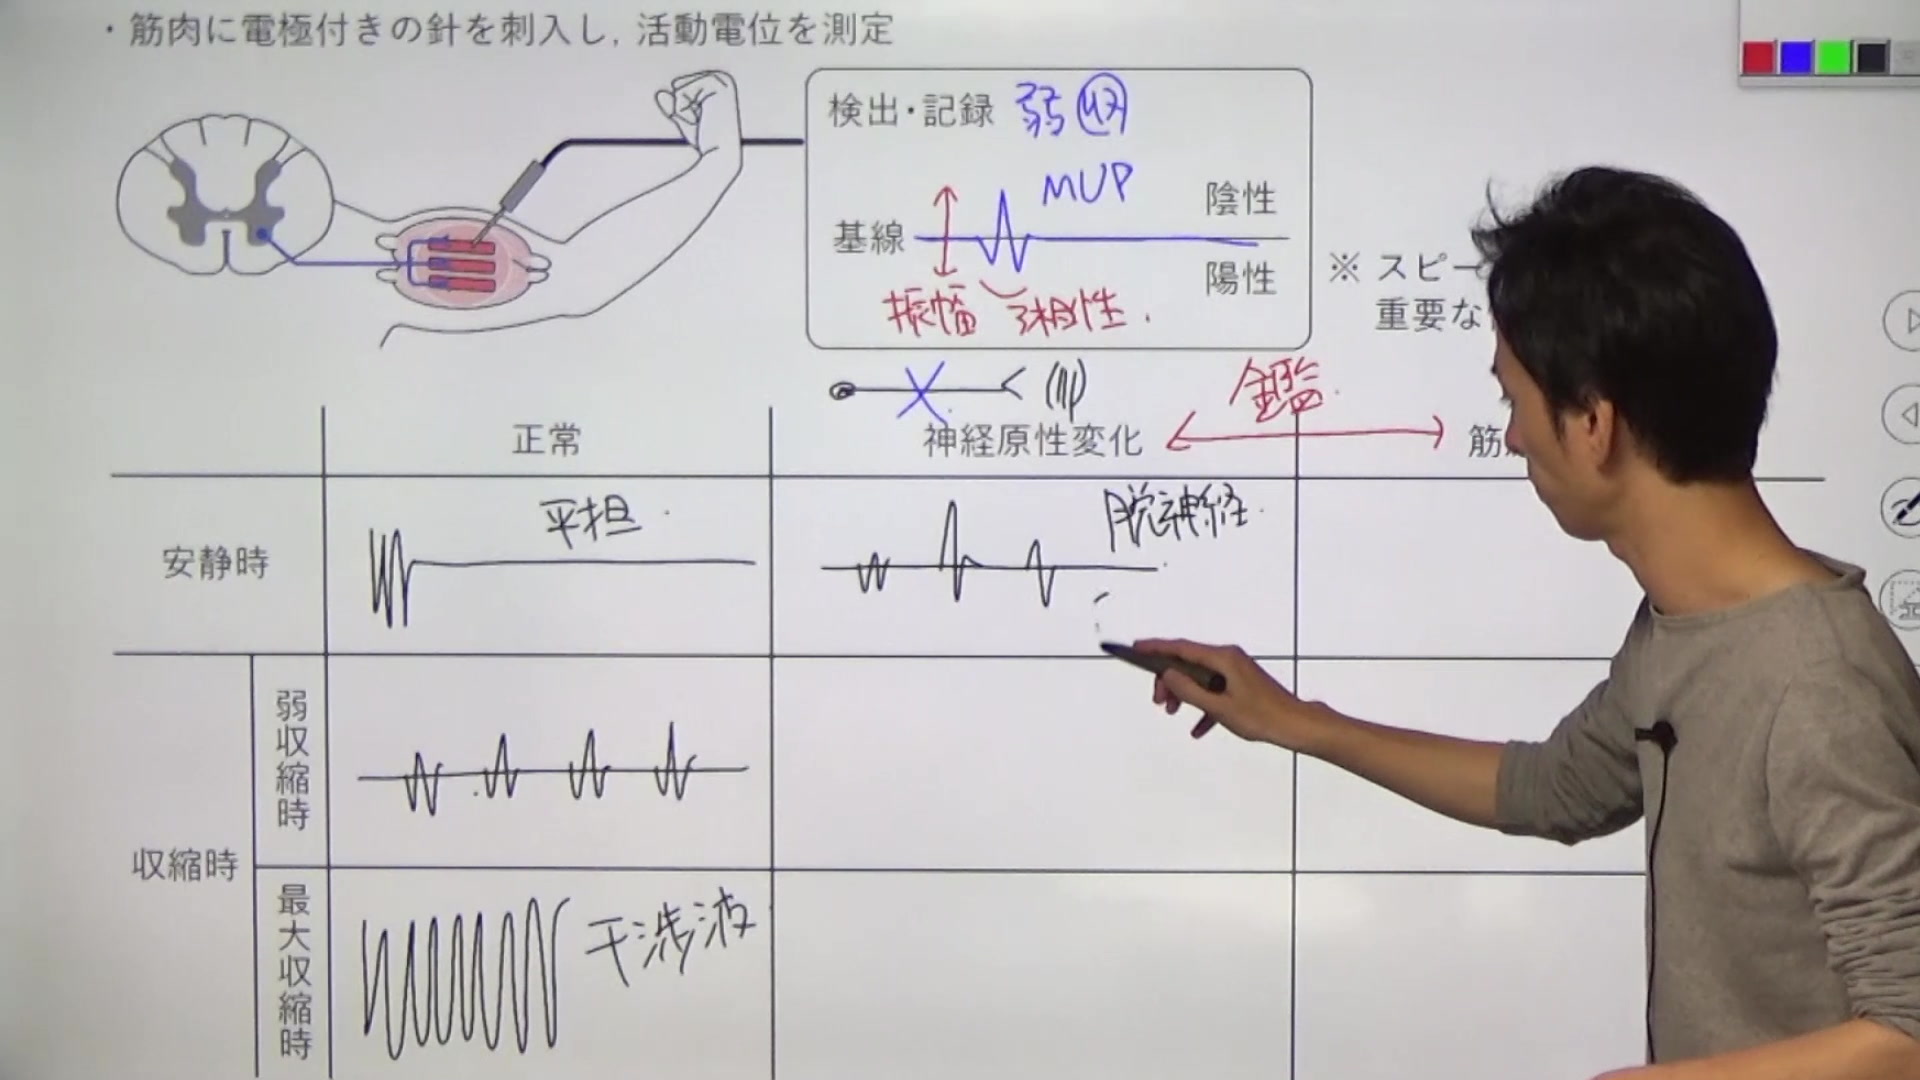 ・筋肉に電極付きの針を刺入し,活動電位を測定
検出・記録 弱収
MUP
陰性
基線
陽性
振幅 3相性.
※ スピー
重要な
鑑
正常
神経原性変化
筋
安静時
平担
脱神経
収縮時
弱収縮時
最大収縮時
干渉波